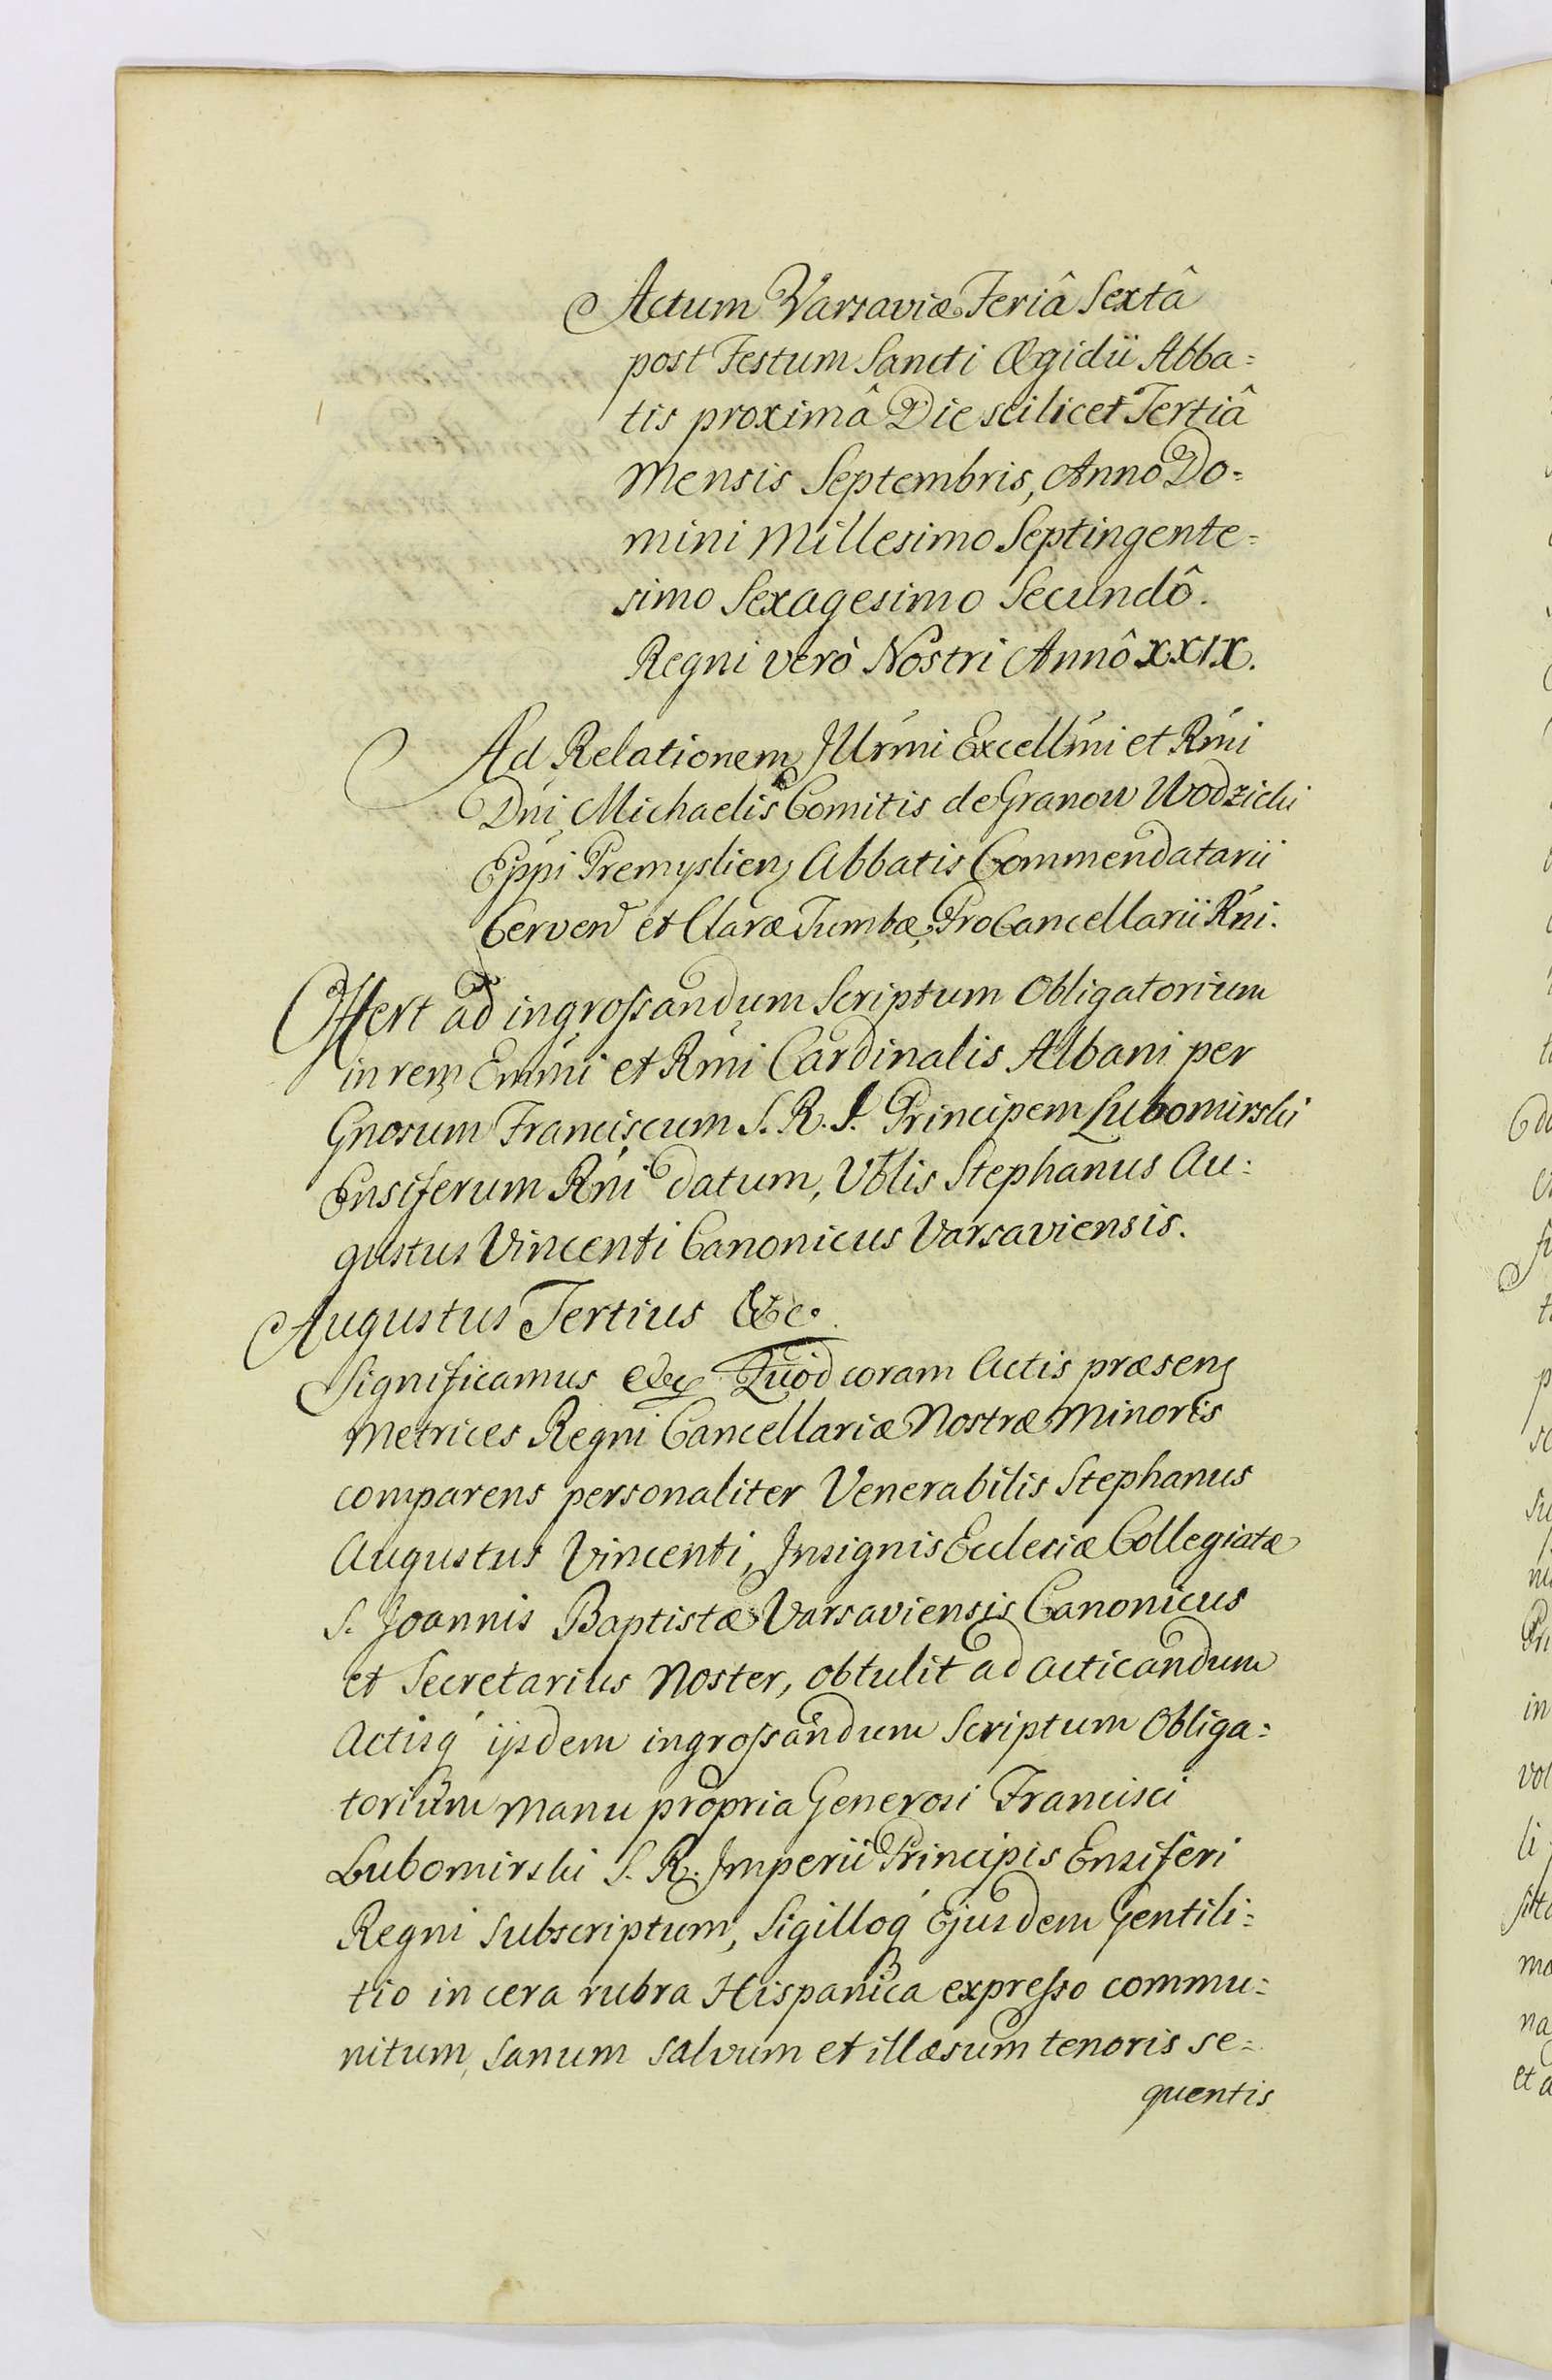 Actum Varsaviæ Feriâ Sextâ
post Festum Sancti Ægidii Abba=
tis proximâ Die scilicet Tertiâ
Mensis Septembris, Anno Do=
mini Millesimo Septingente=
simo Sexagesimo Secundô.
Regni verò Nostri Annô XXIX.
Ad Relationem Illrmi Excellmi et Rmi
Dni Michaelis Comitis de Granow Wodzicki
Eppi Premyslien Abbatis Commendatarii
Cerven et Claræ Tumbæ, ProCancellarii Rni.
Offert ad ingrossandum Scriptum Obligatorium
in rem Emmi et Rmi Cardinalis Albani per
Gnosum Franciscum S. R. I. Principem Lubomirski
Ensiferum Rni datum, Vblis Stephanus Au=
gustus Vincenti Canonicus Varsaviensis.
Augustus Tertius &c.
Significamus &c Quod coram Actis præsen
Metrices Regni Cancellariæ Nostræ Minoris
comparens personaliter Venerabilis Stephanus
Augustus Vincenti, Insignis Ecclesiæ Collegiatæ
S. Joannis Baptistæ Varsaviensis Canonicus
et Secretarius Noster, obtulit ad acticandum
Actisq' ijsdem ingrossandum Scriptum Obliga=
torium manu propria Generosi Francisci
Lubomirski S. R. Imperii Principis Ensiferi
Regni subscriptum, Sigilloq' Ejusdem Gentili=
tio in cera rubra Hispanica expresso commu=
nitum, sanum salvum et illæsum tenoris se=
quentis